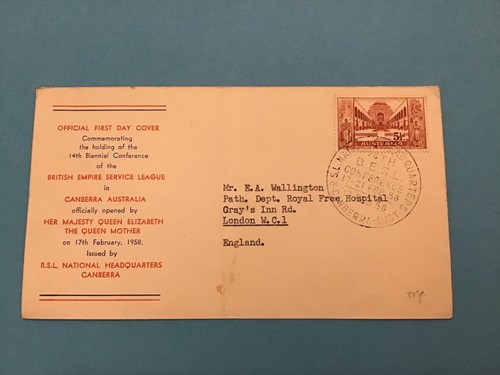 OFFICIAL FIRST DAY COVER
Commemorating
the holding of the
14th Biennial Conference
of the
BRITISH EMPIRE SERVICE LEAGUE
in
CANBERRA AUSTRALIA
officially opened by
HER MAJESTY QUEEN ELIZABETH
THE QUEEN MOTHER
on 17th February, 1958,
Issued by
R.S.L. NATIONAL HEADQUARTERS
CANBERRA
5/-
AUSTRALIA
14TH
B.E.S.L.
CONFERENCE
Mr. E.A. Wallington
Path. Dept. Royal Free Hospital
Gray's Inn Rd.
London W.C.1
England.